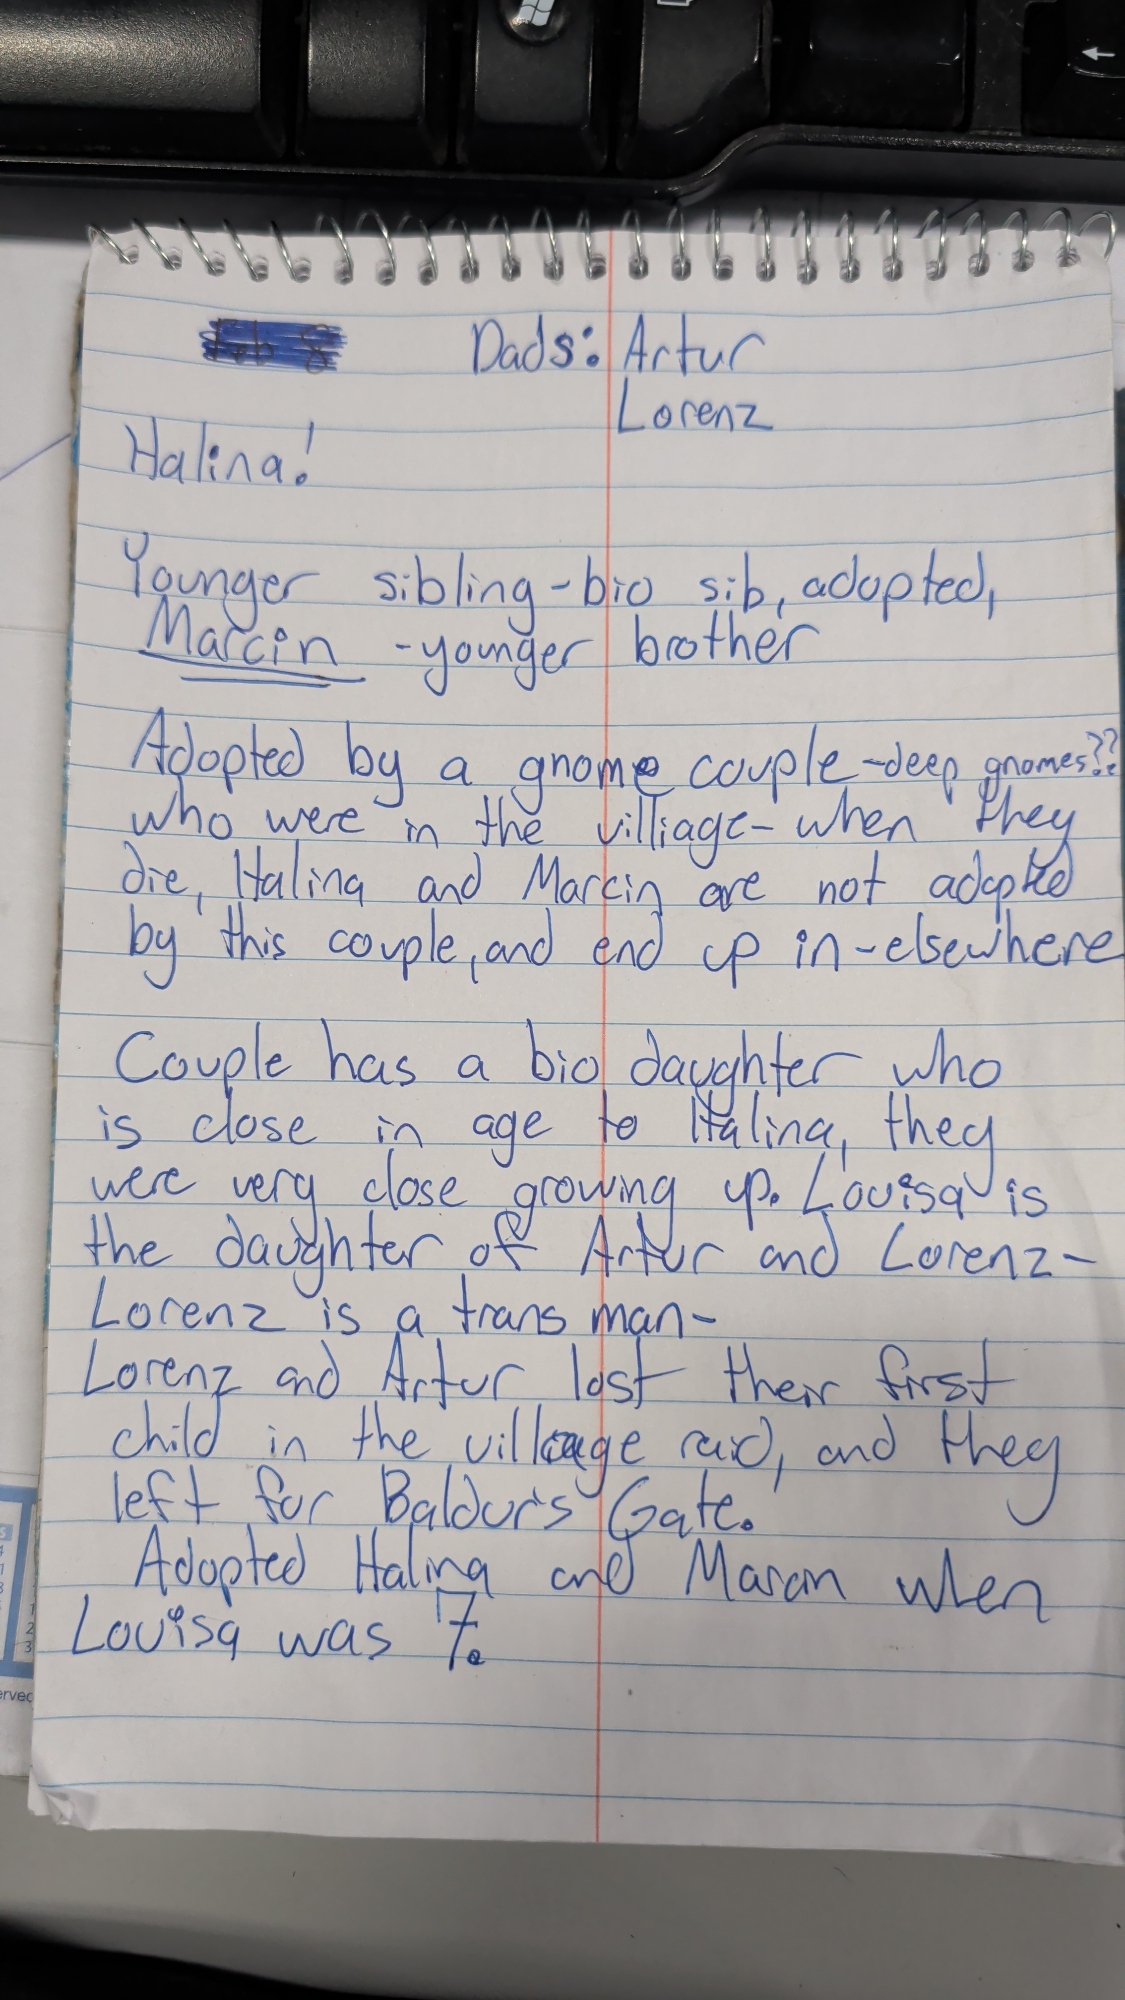 Feb 8
Dads: Artur
Lorenz
Halina!
Younger sibling-bio sib, adopted,
Marcin -younger brother
Adopted by a gnome couple-deep gnomes??
who were in the villiage- when they
die, Halina and Marcin are not adopted
by this couple, and end up in-elsewhere
Couple has a bio daughter who
is close in age to Halina, they
were very close growing up. Louisa is
the daughter of Artur and Lorenz-
Lorenz is a trans man-
Lorenz and Artur lost their first
child in the village raid, and they
left for Baldur's Gate.
Adopted Halina and Marcin when
Louisa was 7.